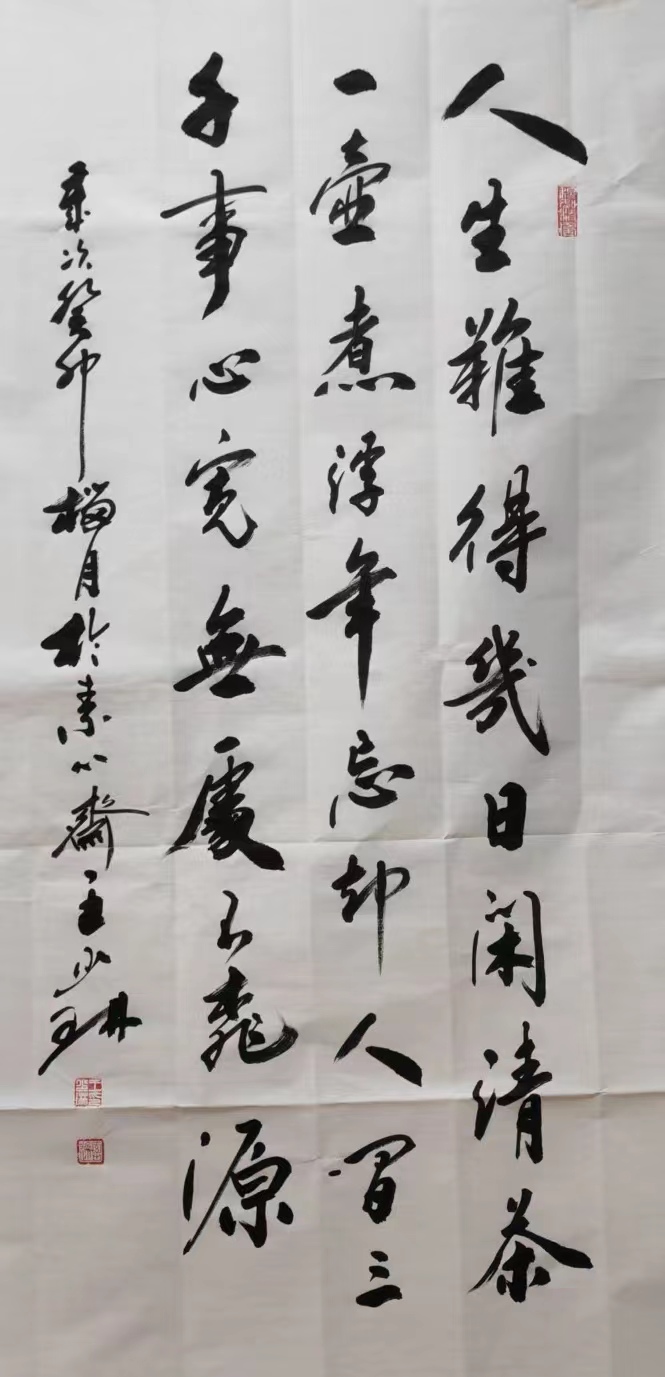 人生難得幾日閑清茶
一壺煮浮年忘却人間三
千事心寬無處不桃源
歲次癸卯榴月於素心齋王少珊